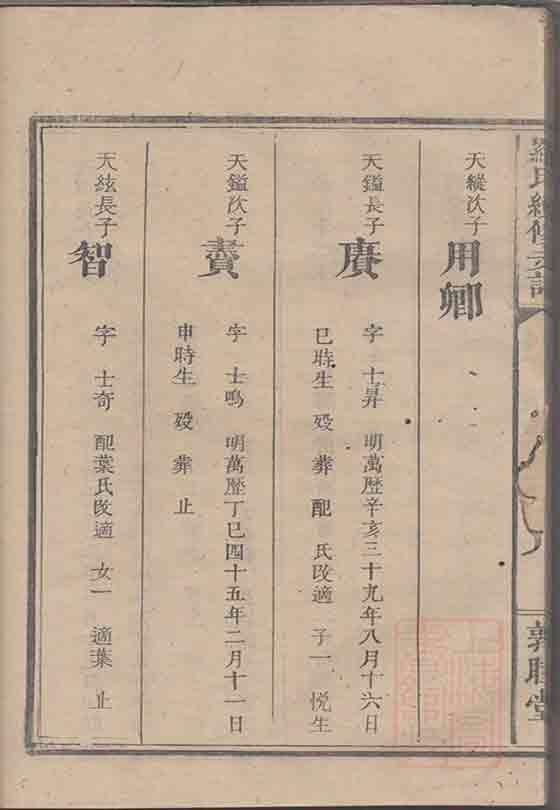 敦睦堂
天縱次子
用卿
天鎰長子
賡
字 士昇 明萬歷辛亥三十九年八月十六日
巳時生 歿 葬 配 氏改適 子一 悅生
天鎰次子
賚
字 士鳴 明萬歷丁巳四十五年二月十一日
申時生 歿 葬 止
天紘長子
智
字 士奇 配葉氏改適 女一 適葉 止